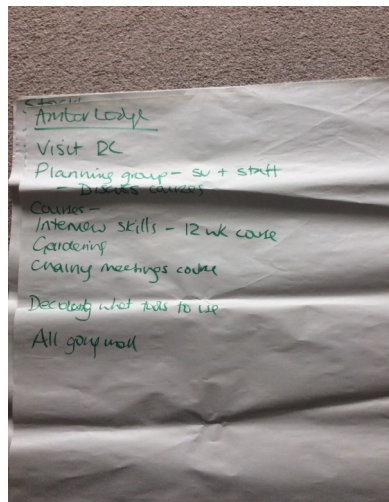 Amber Lodge
Visit RC
Planning group - SU + staff
- Discuss courses
Courses -
Interview skills - 12 wk course
Gardening
Chairing meetings course
Deciding what tools to use
All going well